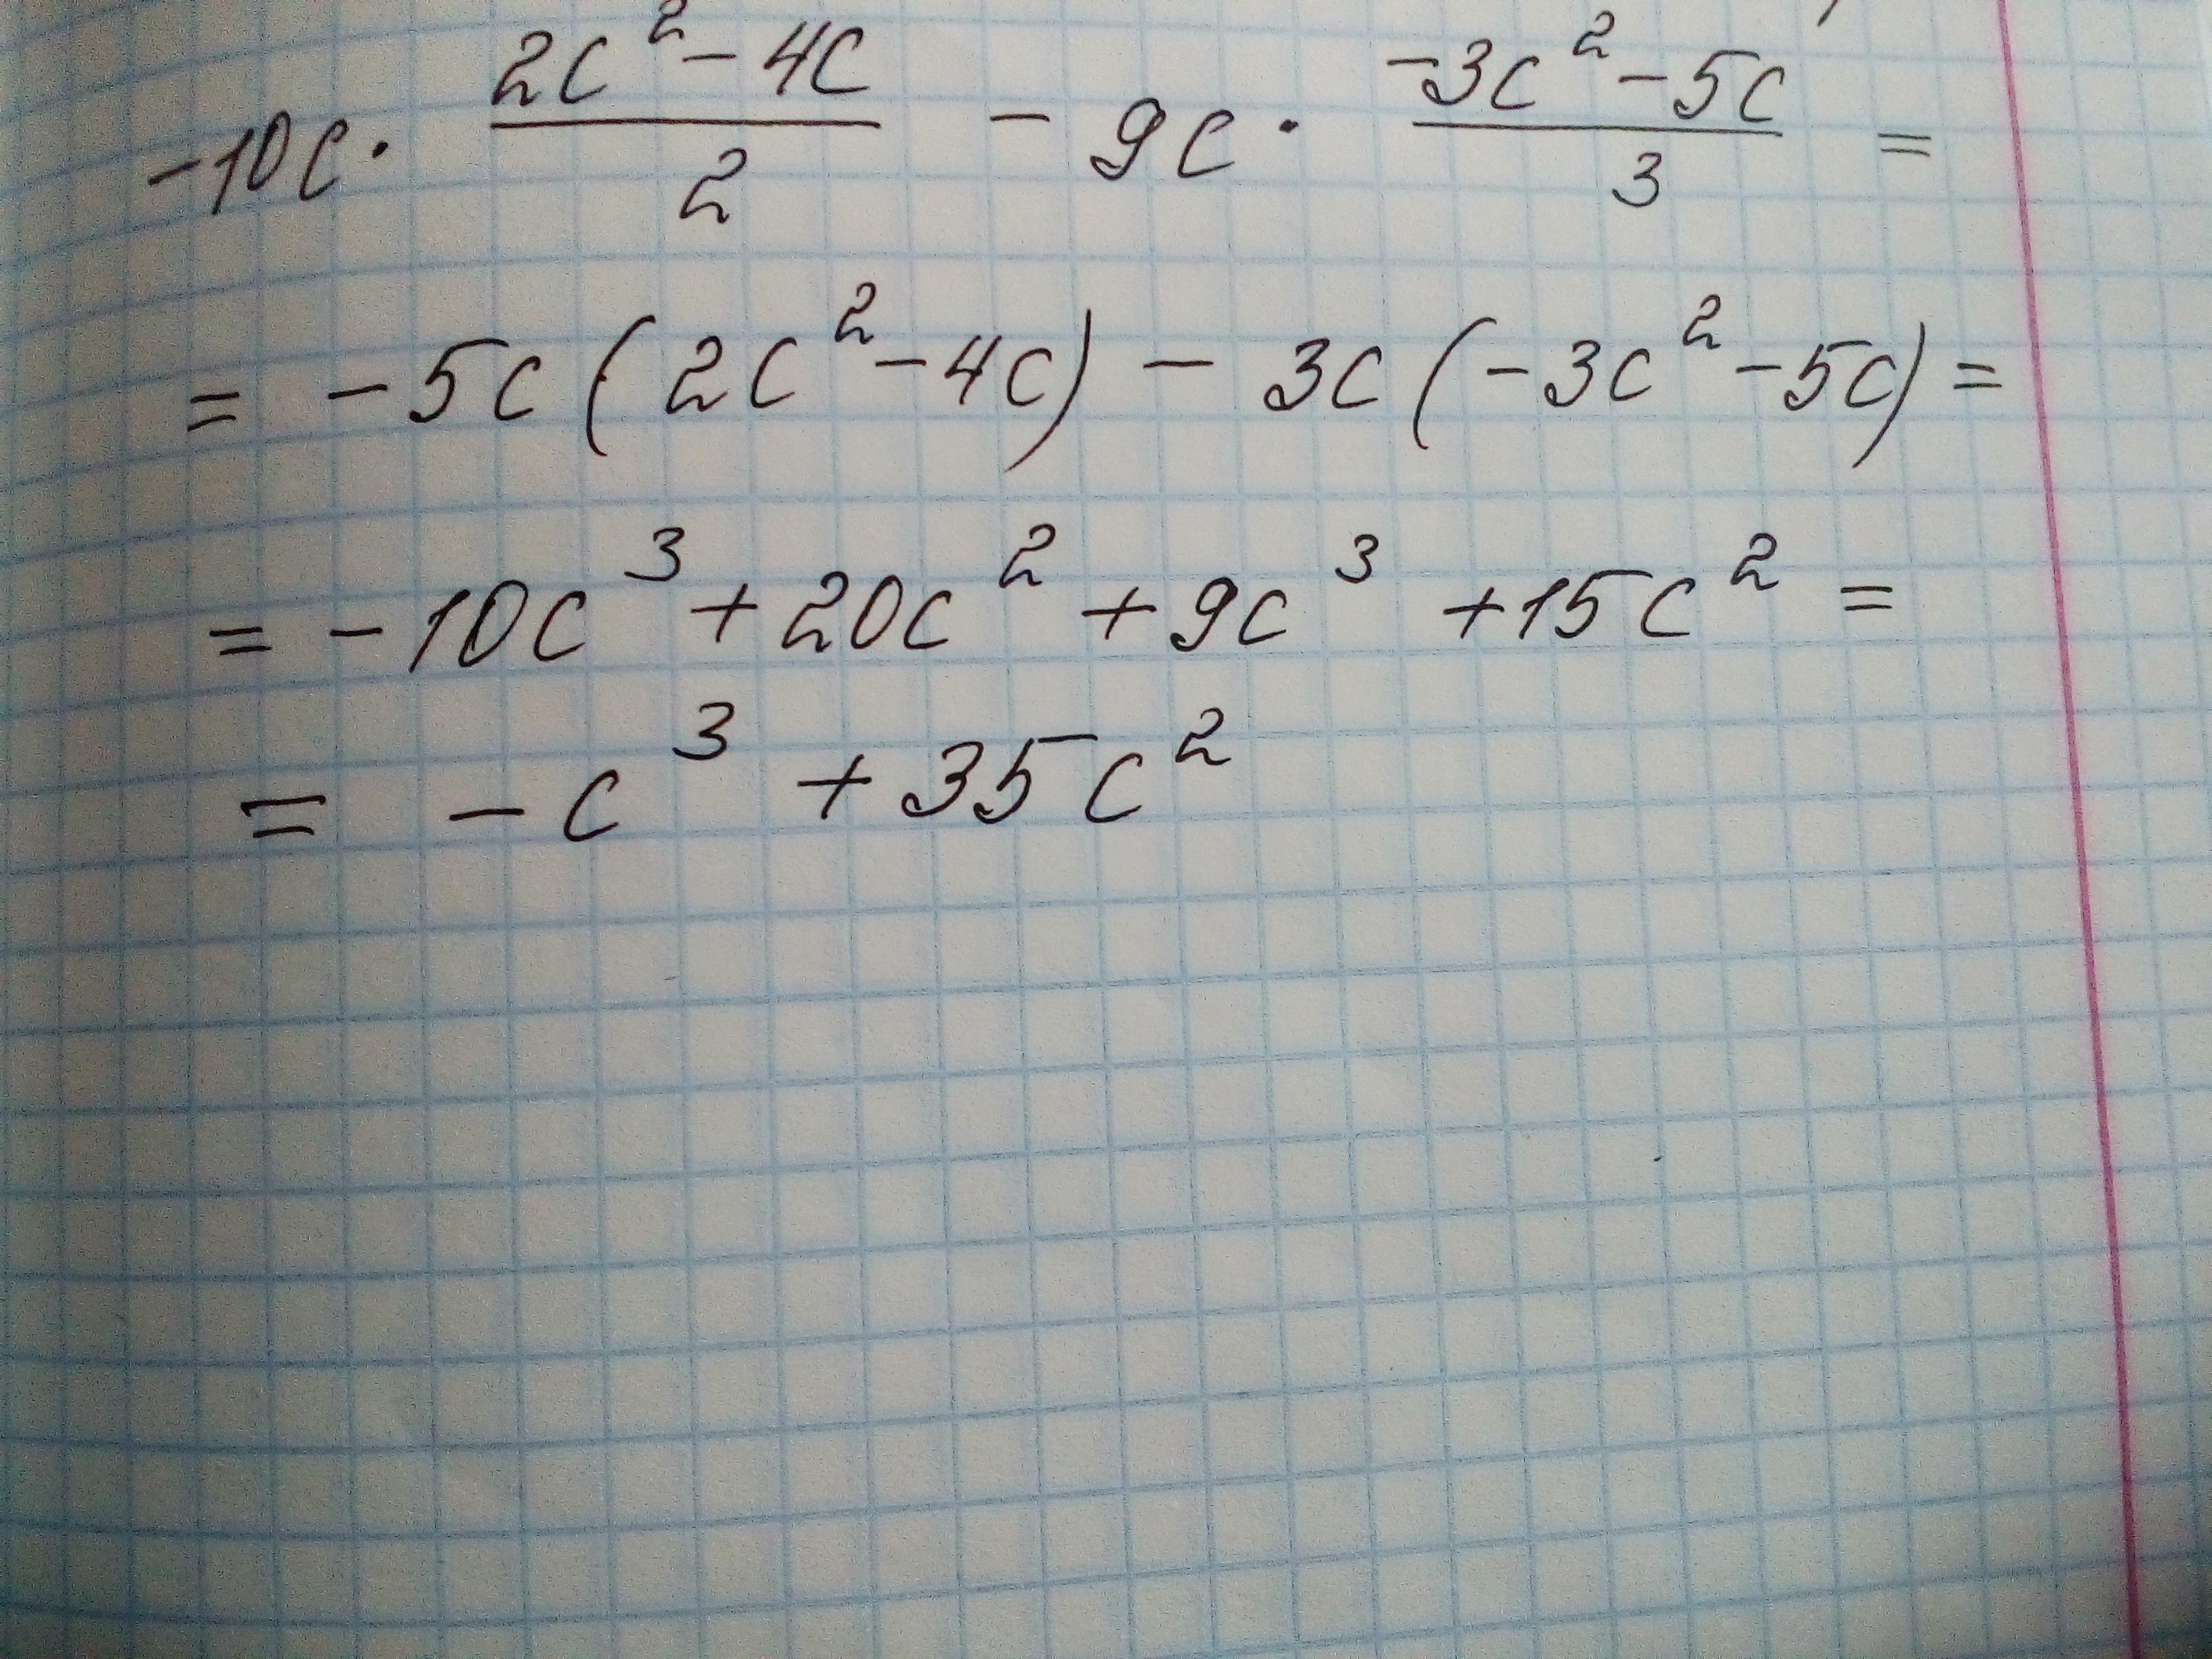 -10c · \frac{2c^2 - 4c}{2} - 9c · \frac{-3c^2 - 5c}{3} =
= -5c(2c^2 - 4c) - 3c(-3c^2 - 5c) =
= -10c^3 + 20c^2 + 9c^3 + 15c^2 =
= -c^3 + 35c^2